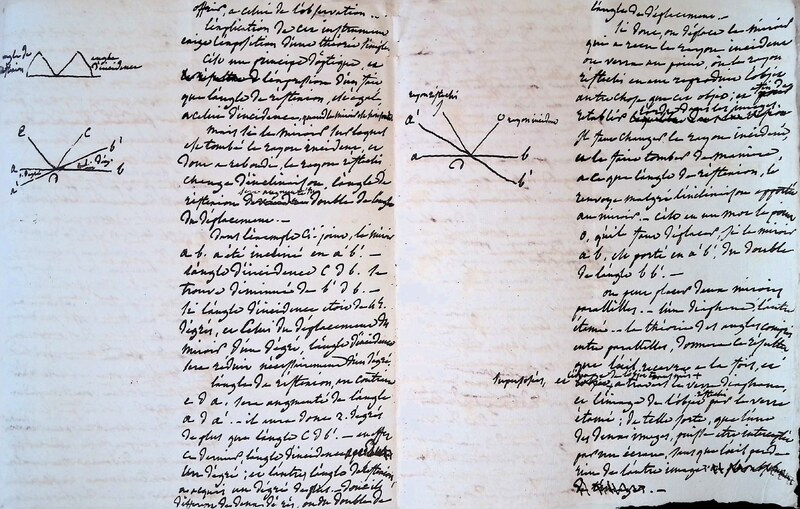 offrir, a celui de l'observation...
l'explication de cet instrument
exige l'exposition d'une théorie simple
C'est un principe d'optique, et
l'expression d'un fait
que l'angle de réflexion, est égal
a celui d'incidence, quand le miroir est
mais si le miroir sur lequel
est tombé le rayon incident, et
dont a rebondi, le rayon réfléchi
change d'inclinaison, l'angle de
réflexion sera augmenté du double de l'angle
du déplacement. —
Dans l'exemple Ci-joint, le miroir
a b. a été incliné en a' b'. —
l'angle d'incidence C d b. se
trouve diminué de b' d b. —
Si l'angle d'incidence étoit de 45
dégrés, et Celui du déplacement du
miroir d'un dégré, l'angle d'incidence
sera réduit nécessairement d'un dégré,
l'angle de réflexion, au contraire
e d a, sera augmenté de l'angle
a d a'. — il aura donc 2. dégrés
de plus que l'angle C d b'. — en effet
Ce dernier, l'angle d'incidence
Un dégré; et l'autre, l'angle de réflexion,
a acquis un dégré de plus. —
différence de deux dégrés, ou du double de
angle de
réflexion
angle
d'incidence
E
C
a
a'
b'
b
l'angle de déplacement. —
Si donc, on déplace le miroir
que a reçu le rayon incident
on verra au point, où le rayon
réfléchi en un reproduira l'objet
autre chose que cet objet; et
rétablir
Il faut changer le rayon incident,
et le faire tomber de manière
a ce que l'angle de réflexion, le
renvoye malgré l'inclinaison apportée
au miroir. — C'est en un mot le point
o, qu'il faut déplacer, si le miroir
a b, est porté en a' b', du double
de l'angle b b'. —
on peut placer deux miroirs
parallèles. — l'un diaphane, l'autre
étamé. — la théorie des angles compris
entre parallèles, donnera
que l'œil recevra a la fois, et
superposés, et
a travers le verre diaphane,
et l'image de l'objet réfléchi par le verre
étamé; de telle sorte, que l'une
des deux images, puisse être interceptée
par un écran, sans que l'œil perde
rien de l'autre image
rayon réfléchi
o rayon incident
a'
a
b
b'